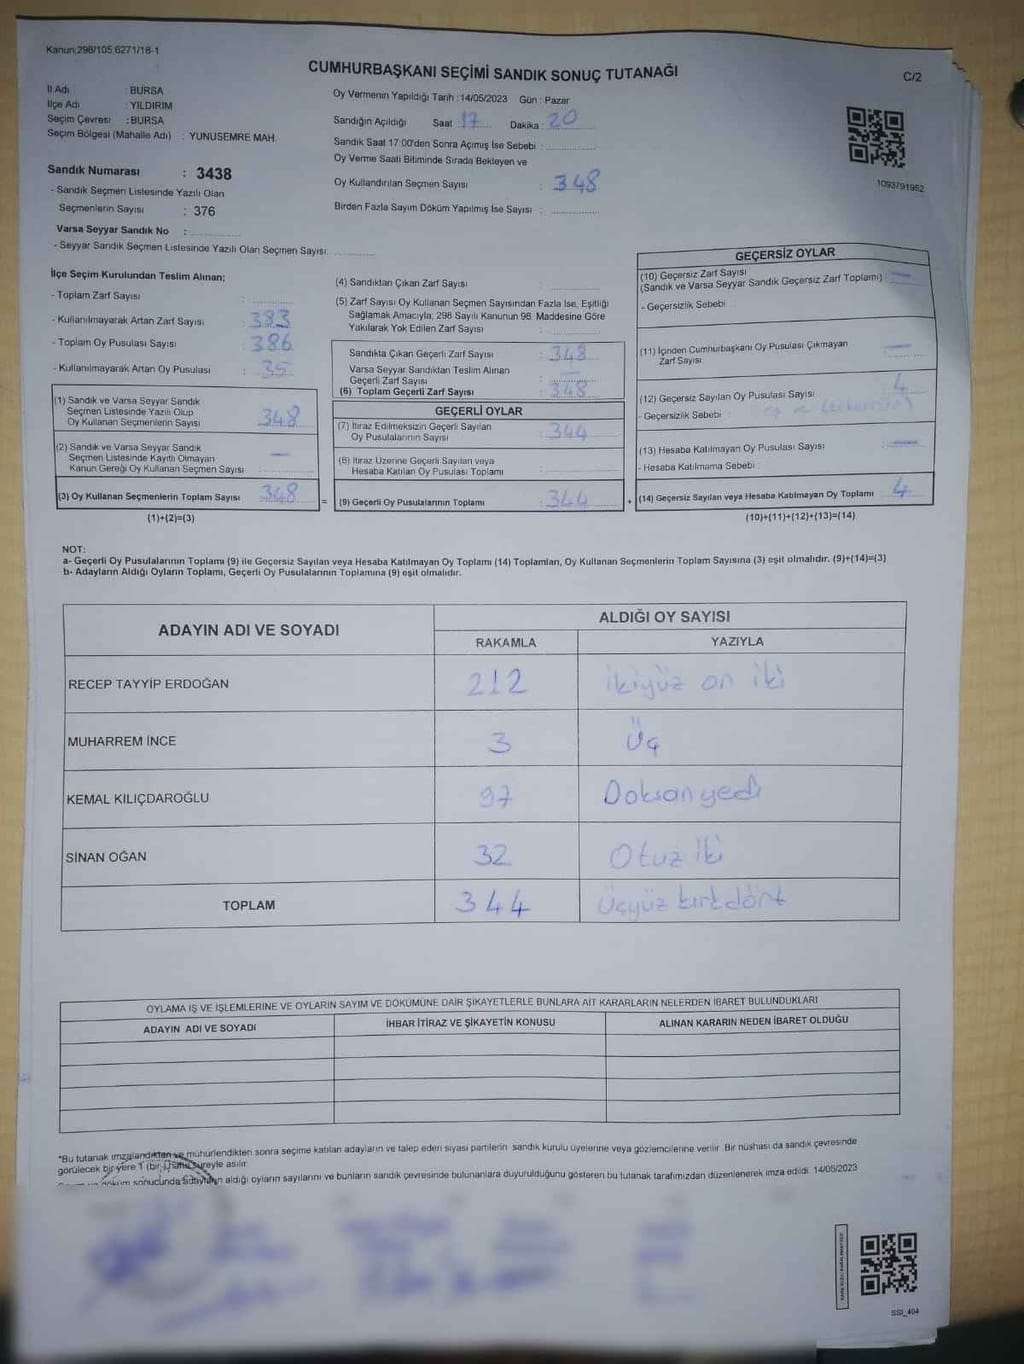 Kanun;298/105;6271/18-1
CUMHURBAŞKANI SEÇİMİ SANDIK SONUÇ TUTANAĞI
C/2
İl Adı : BURSA
İlçe Adı : YILDIRIM
Seçim Çevresi : BURSA
Seçim Bölgesi (Mahalle Adı) : YUNUSEMRE MAH.
Oy Vermenin Yapıldığı Tarih :14/05/2023 Gün : Pazar
Sandığın Açıldığı Saat 17 Dakika : 20
Sandık Saat 17:00'den Sonra Açımış İse Sebebi :
Oy Verme Saati Bitiminde Sırada Bekleyen ve
Oy Kullandırılan Seçmen Sayısı : 348
Birden Fazla Sayım Döküm Yapılmış İse Sayısı :
1093791952
Sandık Numarası : 3438
- Sandık Seçmen Listesinde Yazılı Olan
Seçmenlerin Sayısı : 376
Varsa Seyyar Sandık No :
- Seyyar Sandık Seçmen Listesinde Yazılı Olan Seçmen Sayısı:
İlçe Seçim Kurulundan Teslim Alınan;
- Toplam Zarf Sayısı :
- Kullanılmayarak Artan Zarf Sayısı : 383
- Toplam Oy Pusulası Sayısı : 386
- Kullanılmayarak Artan Oy Pusulası : 35
(1) Sandık ve Varsa Seyyar Sandık
Seçmen Listesinde Yazılı Olup
Oy Kullanan Seçmenlerin Sayısı : 348
(2) Sandık ve Varsa Seyyar Sandık
Seçmen Listesinde Kayıtlı Olmayan
Kanun Gereği Oy Kullanan Seçmen Sayısı : —
(3) Oy Kullanan Seçmenlerin Toplam Sayısı : 348
(1)+(2)=(3)
(4) Sandıktan Çıkan Zarf Sayısı :
(5) Zarf Sayısı Oy Kullanan Seçmen Sayısından Fazla İse, Eşitliği
Sağlamak Amacıyla; 298 Sayılı Kanunun 98. Maddesine Göre
Yakılarak Yok Edilen Zarf Sayısı :
Sandıkta Çıkan Geçerli Zarf Sayısı : 348
Varsa Seyyar Sandıktan Teslim Alınan
Geçerli Zarf Sayısı : —
(6) Toplam Geçerli Zarf Sayısı : 348
GEÇERLİ OYLAR
(7) İtiraz Edilmeksizin Geçerli Sayılan
Oy Pusulalarının Sayısı : 344
(8) İtiraz Üzerine Geçerli Sayılan veya
Hesaba Katılan Oy Pusulası Toplamı :
= (9) Geçerli Oy Pusulalarının Toplamı : 344
GEÇERSİZ OYLAR
(10) Geçersiz Zarf Sayısı
(Sandık ve Varsa Seyyar Sandık Geçersiz Zarf Toplamı) : —
- Geçersizlik Sebebi
(11) İçinden Cumhurbaşkanı Oy Pusulası Çıkmayan
Zarf Sayısı : —
(12) Geçersiz Sayılan Oy Pusulası Sayısı : 4
- Geçersizlik Sebebi :
(13) Hesaba Katılmayan Oy Pusulası Sayısı : —
- Hesaba Katılmama Sebebi :
+ (14) Geçersiz Sayılan veya Hesaba Katılmayan Oy Toplamı : 4
(10)+(11)+(12)+(13)=(14)
NOT:
a- Geçerli Oy Pusulalarının Toplamı (9) ile Geçersiz Sayılan veya Hesaba Katılmayan Oy Toplamı (14) Toplamları, Oy Kullanan Seçmenlerin Toplam Sayısına (3) eşit olmalıdır. (9)+(14)=(3)
b- Adayların Aldığı Oyların Toplamı, Geçerli Oy Pusulalarının Toplamına (9) eşit olmalıdır.
ADAYIN ADI VE SOYADI
ALDIĞI OY SAYISI
RAKAMLA YAZIYLA
RECEP TAYYİP ERDOĞAN 212 ikiyüz on iki
MUHARREM İNCE 3 Üç
KEMAL KILIÇDAROĞLU 97 Doksan yedi
SİNAN OĞAN 32 Otuz iki
TOPLAM 344 Üçyüz kırk dört
OYLAMA İŞ VE İŞLEMLERİNE VE OYLARIN SAYIM VE DÖKÜMÜNE DAİR ŞİKAYETLERLE BUNLARA AİT KARARLARIN NELERDEN İBARET BULUNDUKLARI
ADAYIN ADI VE SOYADI İHBAR İTİRAZ VE ŞİKAYETİN KONUSU ALINAN KARARIN NEDEN İBARET OLDUĞU
*Bu tutanak imzalandıkten ve mühürlendikten sonra seçime katılan adayların ve talep eden siyasi partilerin sandık kurulu üyelerine veya gözlemcilerine verilir. Bir nüshası da sandık çevresinde
görülecek bir yere 1 (bir) hafta süreyle asılır.
döküm sonucunda adayların aldığı oyların sayılarını ve bunların sandık çevresinde bulunanlara duyurulduğunu gösteren bu tutanak tarafımızdan düzenlenerek imza edildi. 14/05/2023
SSI_404